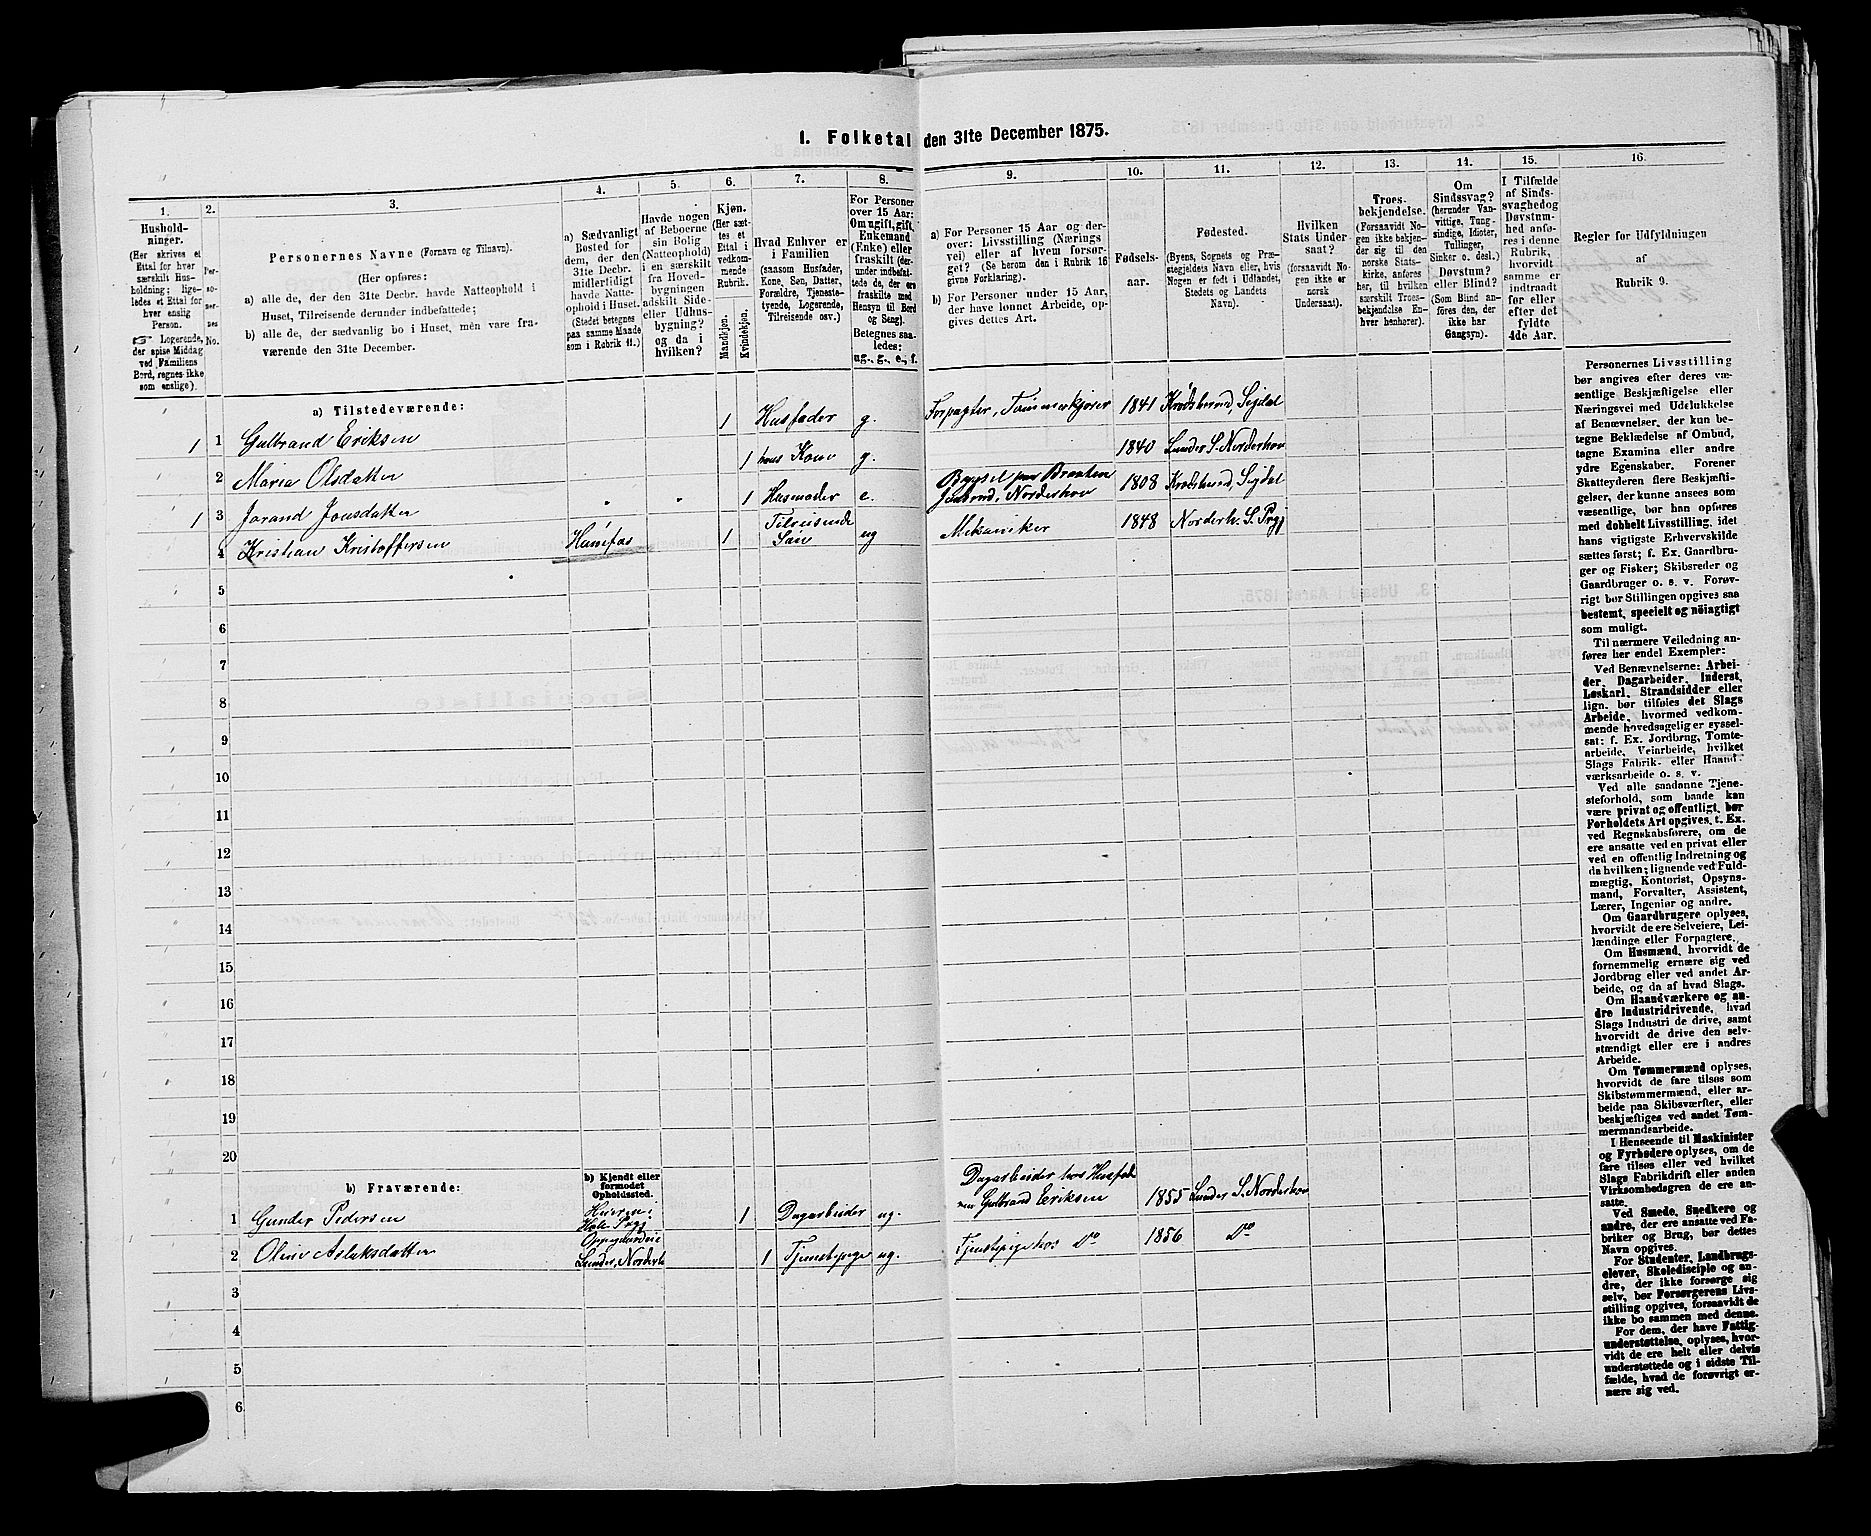 I. Folketal den 31te December 1875.
1.
2.
3.
4.
5.
6.
7.
8.
9.
10.
11.
12.
13.
14.
15.
16.
Hushold-
ninger.
(Her skrives et
Ettal for hver
særskilt Hus-
holdning; lige-
ledes et Ettal for
hver enslig
Person.
☞ Logerende,
der spise Middag
ved Familiens
Bord, regnes ikke
som enslige).
Per-
so-
nernes
No.
Personernes Navne (Fornavn og Tilnavn).
(Her opføres:
a) alle de, der den 31te Decbr. havde Natteophold i
Huset, Tilreisende derunder indbefattede;
b) alle de, der sædvanlig bo i Huset, men vare fra-
værende den 31te December.
a) Sædvanligt
Bosted for
dem, der den
31te Decbr.
midlertidigt
havde Natte-
ophold i Huset.
(Stedet betegnes
paa samme Maade
som i Rubrik 11.)
Havde nogen
af Beboerne
sin Bolig
(Natteophold)
i en særskilt
fra Hoved-
bygningen
adskilt Side-
eller Udhus-
bygning?
og da i
hvilken?
Kjøn.
(Her sæt-
tes et
Ettal i
vedkom-
mende
Rubrik.
Mandkjøn.
Kvindekjøn.
Hvad Enhver er
i Familien
(saasom Husfader,
Kone, Søn, Datter,
Forældre, Tjeneste-
tyende, Logerende,
Tilreisende osv.)
For Personer
over 15 Aar:
Om ugift, gift,
Enkemand
(Enke) eller
fraskilt (der-
under indbefat-
tede de, der ere
fraskilte med
Hensyn til Bord
og Seng).
Betegnes saa-
ledes:
ug., g., e., f.
a) For Personer 15 Aar og der-
over: Livsstilling (Nærings
vei) eller af hvem forsør-
get? (Se herom den i Rubrik 16
givne Forklaring).
b) For Personer under 15 Aar,
der have lønnet Arbeide, op-
gives dettes Art.
Fødsels-
aar.
Fødested.
(Byens, Sognets og Præ-
stegjeldets Navn eller, hvis
Nogen er født i Udlandet,
Stedets og Landets
Navn).
Hvilken
Stats Under-
saat?
(forsaavidt No-
gen ikke er
norsk
Undersaat).
Troes-
bekjendelse.
(Forsaavidt No-
gen ikke bekjen-
der sig til den
norske Stats-
kirke, anføres
her, til hvilken
særskilt Troes-
bekjendelse En-
hver henhører).
Om
Sindssvag?
(herunder Van-
vittige, Tung-
sindige, Idioter,
Tullinger,
Sinker o. desl.)
Døvstum?
eller Blind?
(Som Blind an-
føres den, der
ikke har
Gangsyn).
I Tilfælde
af Sinds-
svaghed og
Døvstum-
hed anfø-
res i denne
Rubrik,
hvorvidt
samme er
indtraadt
før eller
efter det
fyldte
4de Aar.
Regler for Udfyldningen
af
Rubrik 9.
a) Tilstedeværende:
1 1 Gulbrand Eriksen 1 Husfader g. Forpagter, Tømmerkjører 1841 Krødsherred, Sigdal
2 Maria Olsdatter 1 hans Kone g. 1840 Lunder S. Norderhov
1 3 Jorand Jonsdatter " " 1 Husmoder e. Bygsel paa Braaten
Norderhov 1808 Krødsherred, Sigdal
4 Kristian Kristoffersen Hønefos 1 Tilreisende
Søn ug Mekaniker 1848 Norderh. S. Prgj
5
6
7
8
9
10
11
12
13
14
15
16
17
18
19
20
b) Fraværende:
b) Kjendt eller
formodet
Opholdssted.
1 Gunder Pedersen
Hole Prgj 1 Dagarbeider ug. Dagarbeider hos Husfade-
ren Gulbrand Eriksen 1855 Lunder S. Norderhov
2 Oline Aslaksdatter Oppegaardeie
Lunder, Norderh 1 Tjenestepige ug. Tjenestepige hos Do 1856 Do
3
4
5
6
Personernes Livsstilling
bør angives efter deres væ-
sentlige Beskjæftigelse eller
Næringsvei med Udelukkelse
af Benævnelser, der kun be-
tegne Beklædelse af Ombud,
tagne Examina eller andre
ydre Egenskaber. Forener
Skatteyderen flere Beskjæfti-
gelser, der kunne ansees som
væsentlige, bør han opføres
med dobbelt Livsstilling, idet
hans vigtigste Erhvervskilde
sættes først; f. Ex. Gaardbru-
ger og Fisker; Skibsreder og
Gaardbruger o. s. v. Forøv-
rigt bør Stillingen opgives saa
bestemt, specielt og nöiagtigt
som muligt.
Til nærmere Veiledning an-
føres her endel Exempler:
Ved Benævnelserne: Arbei-
der, Dagarbeider, Inderst,
Løskarl, Strandsidder eller
lign. bør tilføies det Slags
Arbeide, hvormed vedkom-
mende hovedsagelig er syssel-
sat: f. Ex. Jordbrug, Tomte-
arbeide, Veiarbeide, hvilket
Slags Fabrik- eller Haand-
værksarbeide o. s. v.
Ved alle saadanne Tjene-
steforhold, som baade kan
være privat og offentligt, bør
Forholdets Art opgives, f. Ex.
ved Regnskabsførere, om de
ere ansatte ved en privat eller
ved en offentlig Indretning og
da hvilken; lignende ved Fuld-
mægtig, Kontorist, Opsyns-
mand, Forvalter, Assistent,
Lærer, Ingeniør og andre.
Om Gaardbrugere oplyses,
hvorvidt de ere Selveiere, Lei-
lændinge eller Forpagtere.
Om Husmænd, hvorvidt de
fornemmelig ernære sig ved
Jordbrug eller ved andet Ar-
beide, og da af hvad Slags.
Om Haandværkere og an-
dre Industridrivende, hvad
Slags Industri de drive, samt
hvorvidt de drive den selv-
stændigt eller ere i andres
Arbeide.
Om Tømmermænd oplyses,
hvorvidt de fare tilsøs som
Skibstømmermænd, eller ar-
beide paa Skibsværfter, eller
beskjæftiges ved andet Tøm-
mermandsarbeide.
I Henseende til Maskinister
og Fyrbødere oplyses, om de
fare tilsøs eller ved hvilket
Slags Fabrikdrift eller anden
Virksomhedsgren de ere an-
satte.
Ved Smede, Snedkere og
andre, der ere ansatte ved Fa-
briker og Brug, bør dettes
Navn opgives.
For Studenter, Landbrugs-
elever, Skoledisciple og an-
dre, der ikke forsørge sig
selv, bør Forsørgerens Livs-
stilling opgives, forsaavidt de
ikke bo sammen med denne.
For dem, der have Fattig-
understøttelse, oplyses, hvor-
vidt de ere helt eller delvis
understøttede og i sidste Til-
fælde, hvad de forøvrigt er-
nære sig ved.